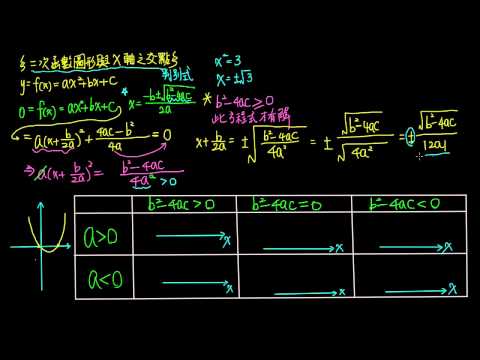 ξ 二次函數圖形與 X 軸之交點 ξ
y=f(x)=ax²+bx+c
判別式
0=f(x)=ax²+bx+c
* x=(-b±√(b²-4ac))/2a
⇒ a(x+b/2a)²+(4ac-b²)/4a=0
⇒ a(x+b/2a)²=(b²-4ac)/4a² >0
x²=3
x=±√3
* b²-4ac≥0
此方程式才有解
x+b/2a=±√((b²-4ac)/4a²)=±√(b²-4ac)/√(4a²)=±√(b²-4ac)/|2a|
b²-4ac>0 b²-4ac=0 b²-4ac<0
a>0 x x x
a<0 x x x